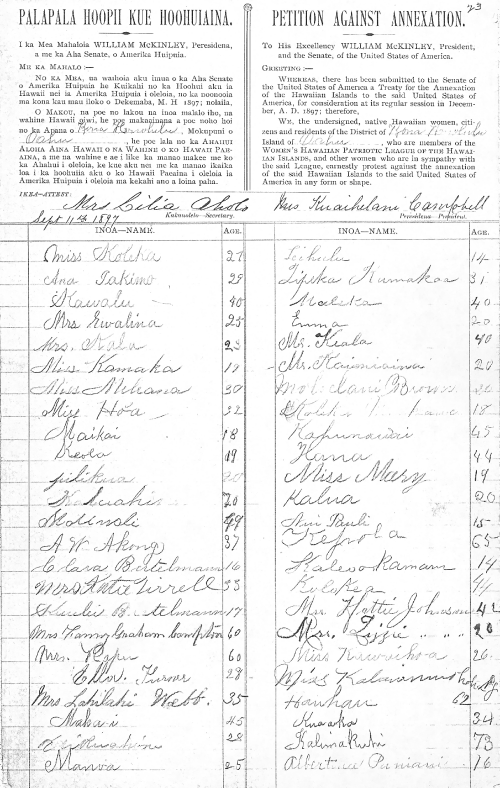 23
PALAPALA HOOPII KUE HOOHUIAINA.
I ka Mea Mahaloia WILLIAM McKINLEY, Peresidena,
a me ka Aha Senate, o Amerika Huipuia.
ME KA MAHALO:—
No KA MEA, ua waihoia aku imua o ka Aha Senate
o Amerika Huipuia he Kuikahi no ka Hoohui aku ia
Hawaii nei ia Amerika Huipuia i oleloia, no ka noonooia
ma kona kau mau iloko o Dekemaba, M. H 1897; nolaila,
O MAKOU, na poe no lakou na inoa malalo iho, he
wahine Hawaii oiwi, he poe makaainana a poe noho hoi
no ka Apana o Kona Honolulu, Mokupuni o
Oahu, he poe lala no ka AHAHUI
ALOHA AINA HAWAII O NA WAHINE O KO HAWAII PAE-
AINA, a me na wahine e ae i like ka manao makee me ko
ka Ahahui i oleloia, ke kue aku nei me ka manao ikaika
loa i ka hoohuiia aku o ko Hawaii Paeaina i oleloia ia
Amerika Huipuia i oleloia ma kekahi ano a loina paha.
IKEA—ATTEST:
Mrs Lilia Aholo
Sept 11th 1897
Kakauolelo—Secretary.
PETITION AGAINST ANNEXATION.
To His Excellency WILLIAM McKINLEY, President,
and the Senate, of the United States of America.
GREETING:—
WHEREAS, there has been submitted to the Senate of
the United States of America a Treaty for the Annexation
of the Hawaiian Islands to the said United States of
America, for consideration at its regular session in Decem-
ber, A. D. 1897; therefore,
WE, the undersigned, native Hawaiian women, citi-
zens and residents of the District of Kona Honolulu
Island of Oahu, who are members of the
WOMEN'S HAWAIIAN PATRIOTIC LEAGUE OF THE HAWAI-
IAN ISLANDS, and other women who are in sympathy with
the said League, earnestly protest against the annexation
of the said Hawaiian Islands to the said United States of
America in any form or shape.
Mrs Kuaihelani Campbell
Peresidena—President.
INOA—NAME. AGE.
Miss Koleka 27
Ana Takimo 29
Kawalu 40
Mrs Ewalina 25
Mrs. Kala 23
Miss. Kamaka
Miss Mihana 30
Miss Hoa 22
Maikai 18
Keola 19
pilikua 20
20
A W Akong 37
Clara Bertelmann 16
Mrs Katie Tirrell 33
Bertelmann 17
Mrs Fanny Graham Compton 60
Mrs. 60
28
Mrs Lahilahi Webb. 35
45
28
Manoa 25
INOA—NAME. AGE.
14
Kamakea 31
Maleka 40
Emma 20
Ms. Keala 40
20
Brown
18
Kapunawai 45
Kanu 44
Miss Mary 19
Kalua 20
Pauli 15
Kepola 65
14
Kolokea 44
Mrs Hattie Johnson 42
Mrs. Lizzie " " 20
Miss 26
Miss
Hauhau 62
Kuaaka 34
73
Albertina Puniani 16